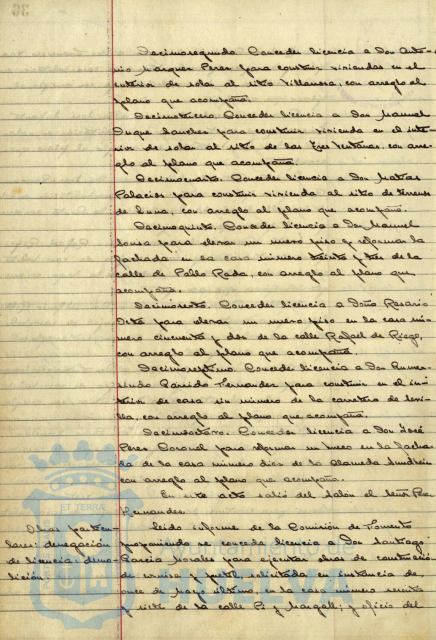 Decimosegundo. Conceder licencia a Don Anto-
nio Marquez Perez para construir viviendas en el
interior de solar al sitio Villanera, con arreglo al
plano que acompaña.
Decimotercero. Conceder licencia a Don Manuel
Duque Sanchez para construir vivienda en el inte-
rior de solar al sitio de las Tres Ventanas, con arre-
glo al plano que acompaña.
Decimocuarto. Conceder licencia a Don Matias
Palacios para construir vivienda al sitio de
de Luna, con arreglo al plano que acompaña.
Decimoquinto. Conceder licencia a Don Manuel
Sousa para elevar un nuevo piso y reformar la
fachada en la casa número treinta y tres de la
calle de Pablo Rada, con arreglo al plano que
acompaña.
Decimosexto. Conceder licencia a Doña Rosario
Orta para elevar un nuevo piso en la casa nú-
mero cincuenta y dos de la calle Rafael de Riego,
con arreglo al plano que acompaña.
Decimoseptimo. Conceder licencia a Don Gumer-
sindo Garrido Fernandez para construir en el in-
terior de casa sin numero de la carretera de Sevi-
lla, con arreglo al plano que acompaña.
Decimoctavo. Conceder licencia a Don José
Perez Coronel para reformar un hueco en la facha-
da de la casa número dies de la Alameda Sundheim
con arreglo al plano que acompaña.
En este acto salió del Salón el señor Pérez
Fernandez.
Obras particu-
lares: denegación
de licencia: demo-
lición.
Leido informe de la Comisión de Fomento
proponiendo se conceda licencia a Don Santiago
Garcia Morales para ejecutar obras de construcción
de cornisa y pretil, solicitada en instancia de
once de Mayo último, en la casa número
y siete de la calle Pi y Margall; y oficio del